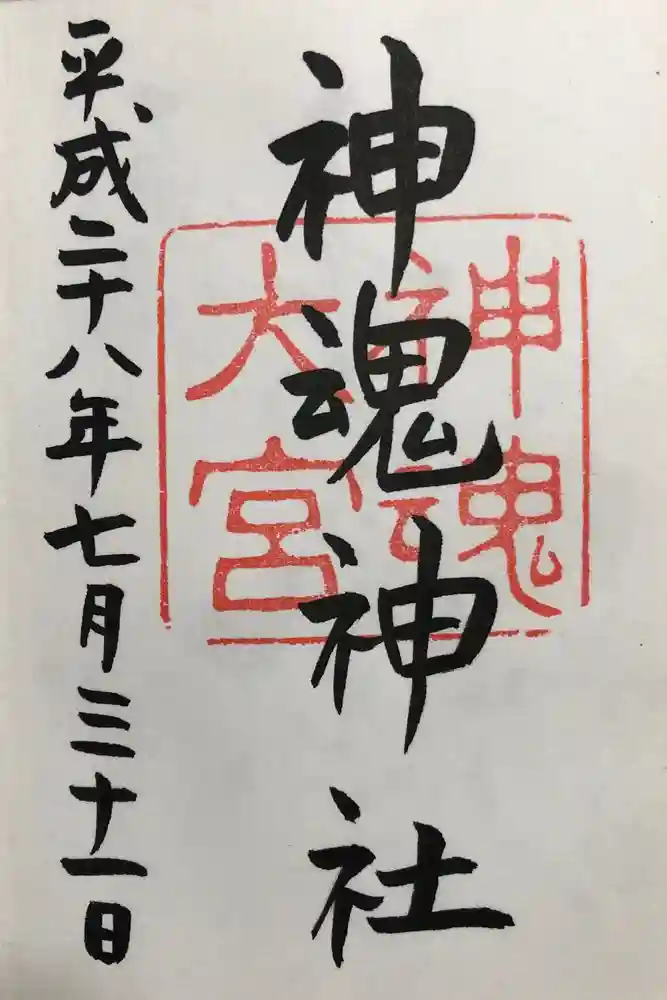 神魂神社
神魂
大宮
平成二十八年七月三十一日